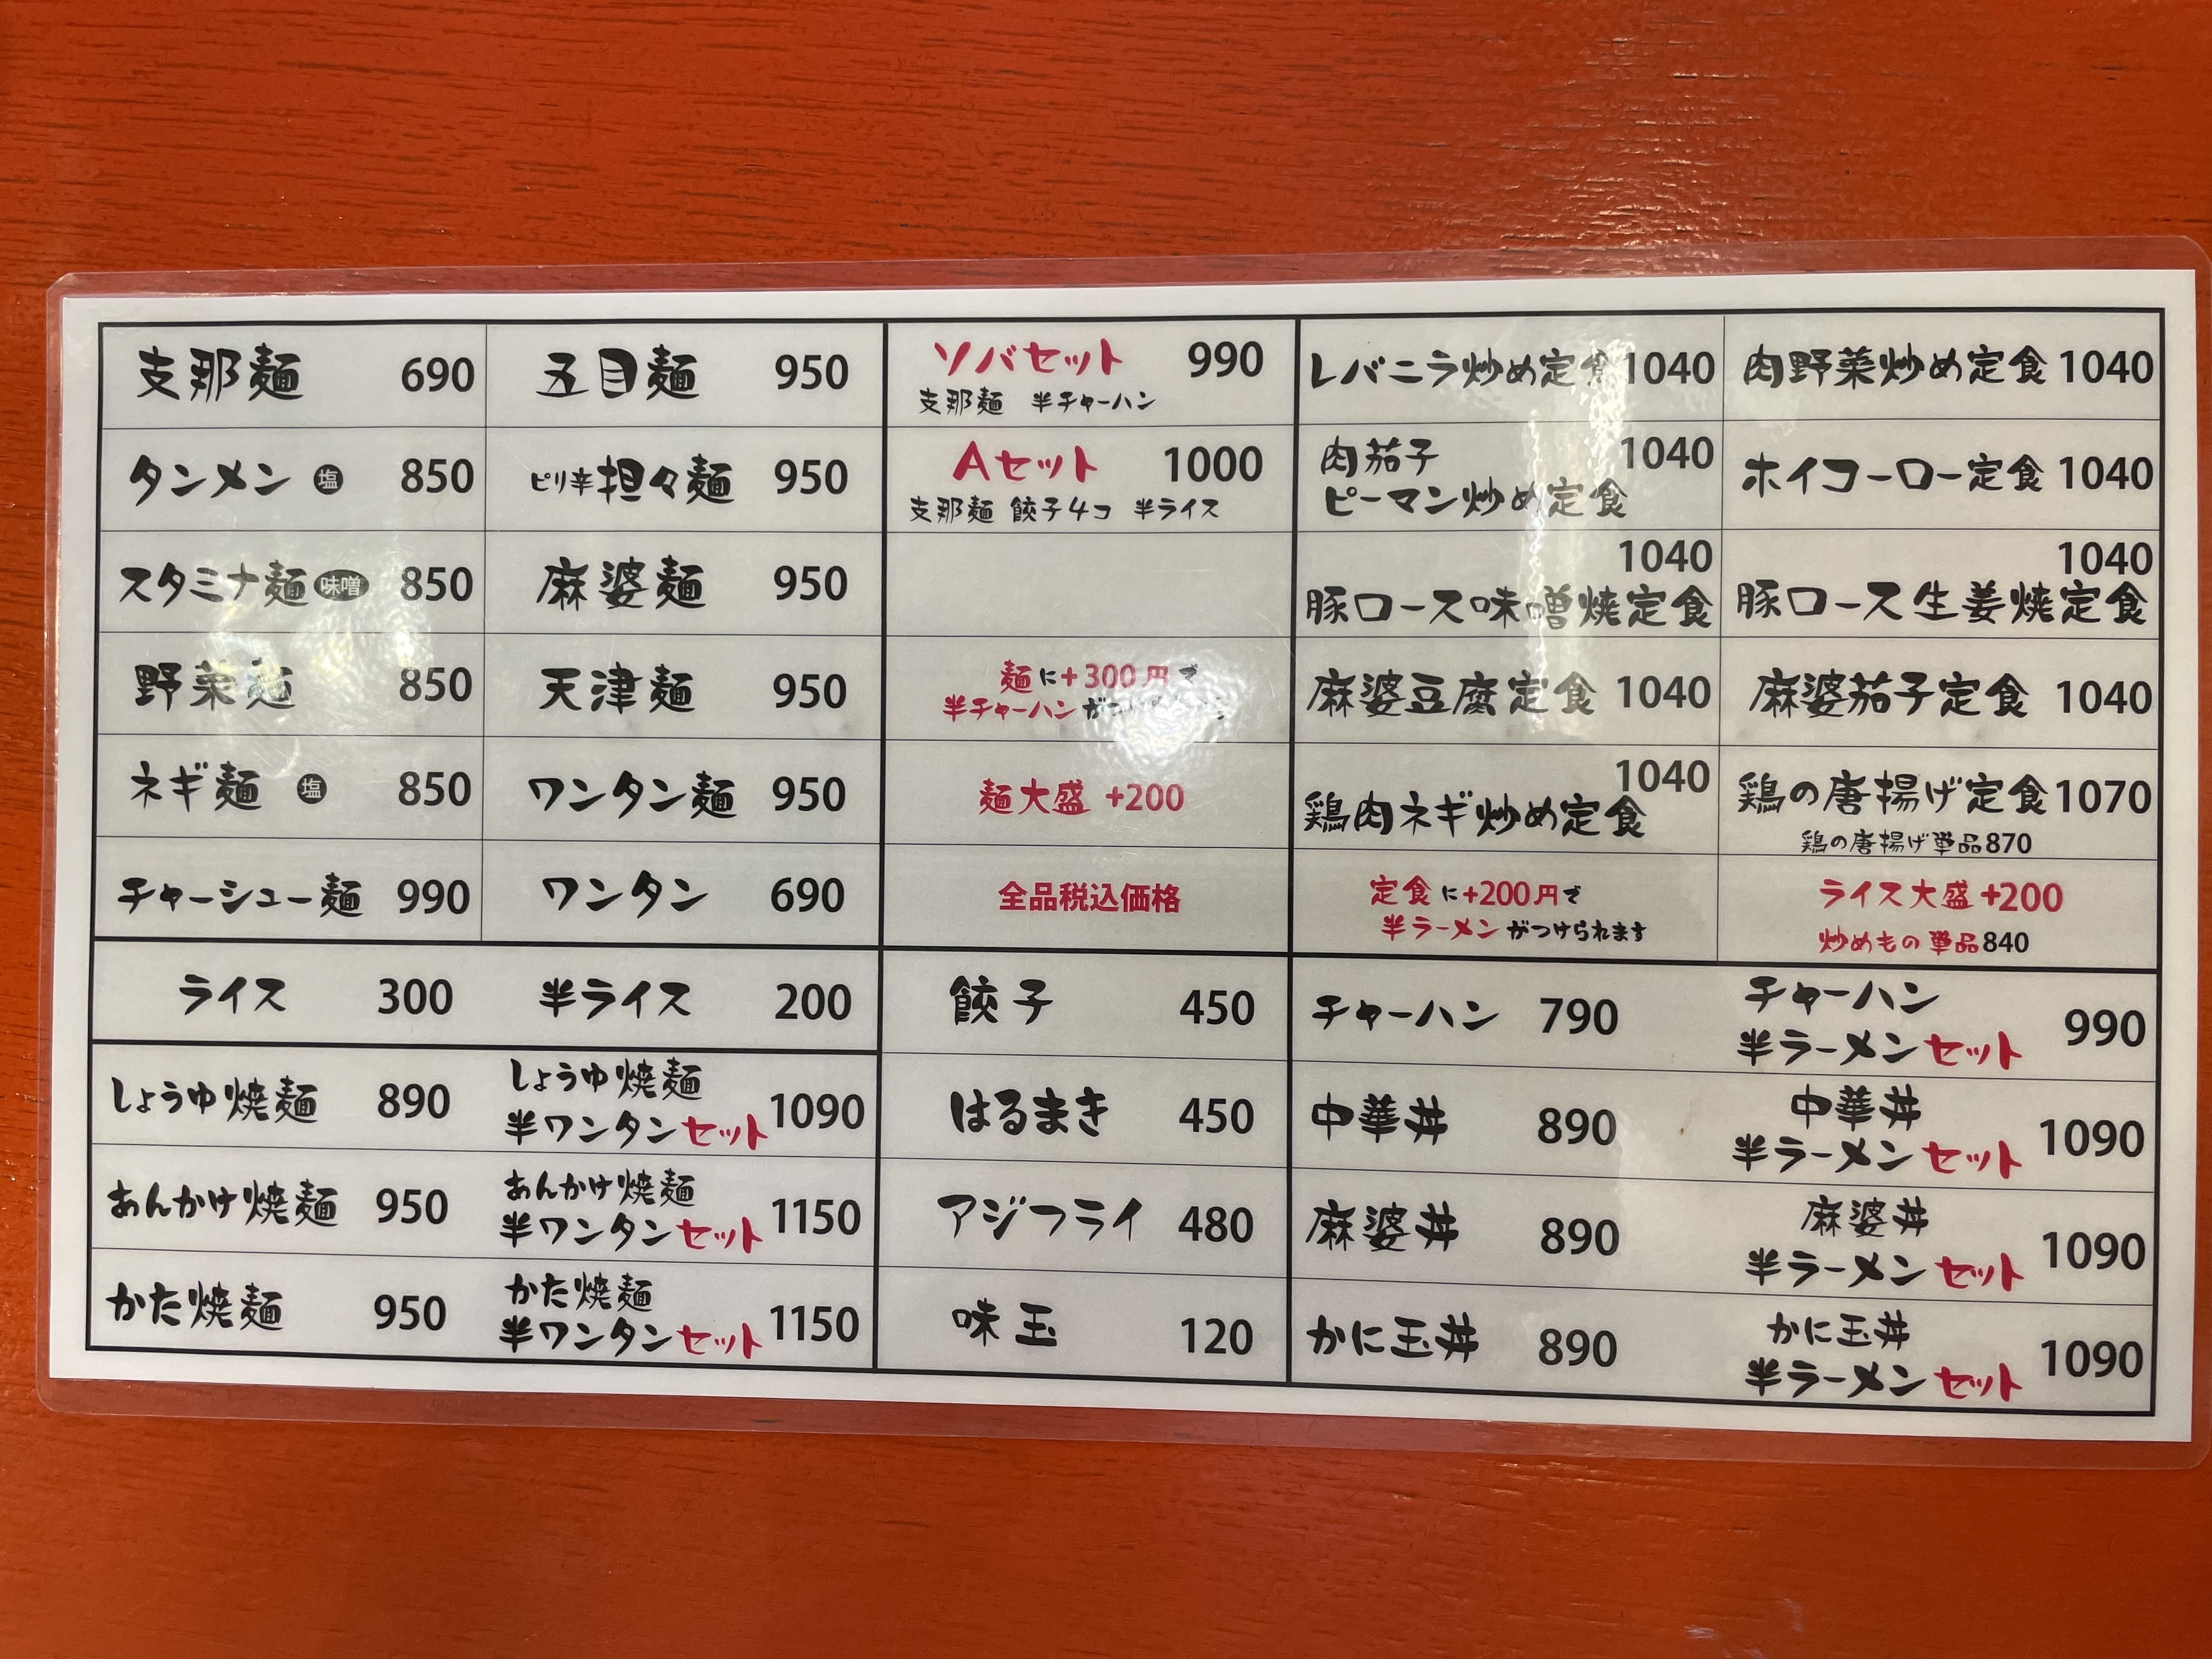 支那麺 690
タンメン 塩 850
スタミナ麺 味噌 850
野菜麺 850
ネギ麺 塩 850
チャーシュー麺 990
五目麺 950
ピリ辛担々麺 950
麻婆麺 950
天津麺 950
ワンタン麺 950
ワンタン 690
ソバセット 990
支那麺 半チャーハン
Aセット 1000
支那麺 餃子4コ 半ライス
麺に+300円で
半チャーハンが
麺大盛 +200
全品税込価格
レバニラ炒め定食 1040
肉茄子 1040
ピーマン炒め定食
1040
豚ロース味噌焼定食
麻婆豆腐定食 1040
1040
鶏肉ネギ炒め定食
定食に+200円で
半ラーメンがつけられます
肉野菜炒め定食 1040
ホイコーロー定食 1040
1040
豚ロース生姜焼定食
麻婆茄子定食 1040
鶏の唐揚げ定食 1070
鶏の唐揚げ単品870
ライス大盛+200
炒めもの単品840
ライス 300 半ライス 200
しょうゆ焼麺 890
しょうゆ焼麺
半ワンタンセット 1090
あんかけ焼麺 950
あんかけ焼麺
半ワンタンセット 1150
かた焼麺 950
かた焼麺
半ワンタンセット 1150
餃子 450
はるまき 450
アジフライ 480
味玉 120
チャーハン 790
チャーハン
半ラーメンセット 990
中華丼 890
中華丼
半ラーメンセット 1090
麻婆丼 890
麻婆丼
半ラーメンセット 1090
かに玉丼 890
かに玉丼
半ラーメンセット 1090